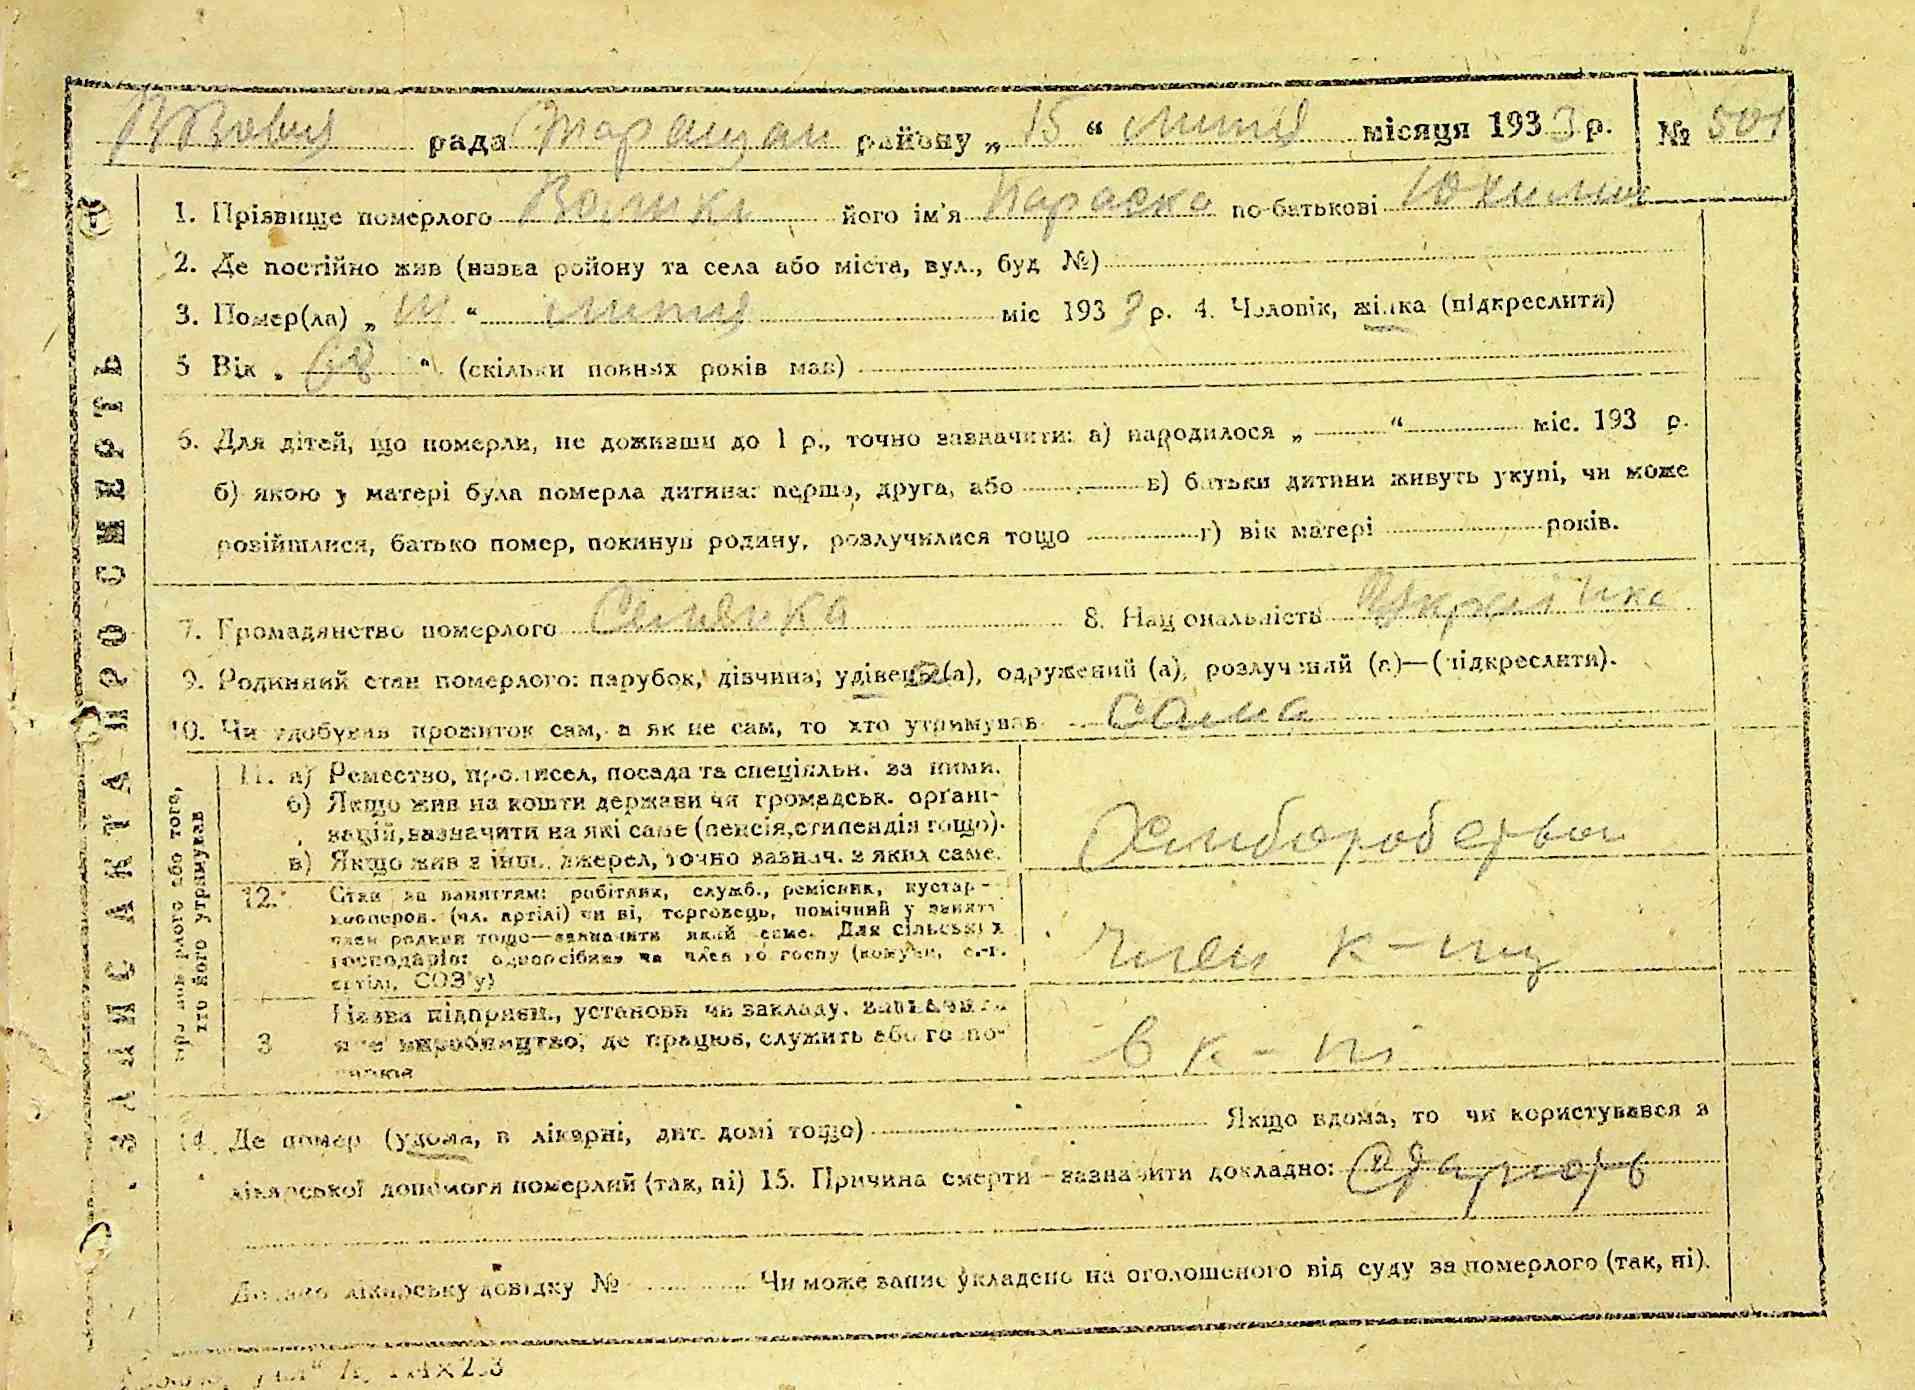 рада Таращан району „ 15 “ липця місяця 193 3 р. № 501
1. Прізвище померлого його ім'я Параска по-батькові Юхимів
2. Де постійно жив (назва району та села або міста, вул., буд №)
3. Помер(ла) „ “ липця міс 193 3 р. 4. Чоловік, жінка (підкреслити)
5 Вік „ 68 “ (скільки повних років мав)
6. Для дітей, що померли, не доживши до 1 р., точно зазначити: а) народилося „ “ міс. 193 р.
б) якою у матері була померла дитина: перша, друга, або в) батьки дитини живуть укупі, чи може
розійшлися, батько помер, покинув родину, розлучилися тощо г) вік матері років.
7. Громадянство померлого Селянка 8. Національність Українка
9. Родинний стан померлого: парубок, дівчина, удівець(а), одружений (а), розлучений (а)—(підкреслити).
10. Чи здобував прожиток сам, а як не сам, то хто утримував сама
11. а) Ремество, промисел, посада та спеціяльн. за ними.
б) Якщо жив на кошти держави чи громадськ. органі-
зацій, зазначити на які саме (пенсія, стипендія тощо).
в) Якщо жив з інш. джерел, точно зазнач. з яких саме.
Хлібороберва
12. Стан за заняттям: робітник, служб., ремісник, кустар—
кооперов. (чл. артілі) чи ні, торговець, помічний у занятт
член родини тощо—зазначити який саме. Для сільських
господарів: одноосібник чи член колгоспу (комуни, с.-г.
артілі, СОЗ'у)
член к-пу
3 Назва підприєм., установи чи закладу, зазначити
яке виробництво, де працює, служить або госпо-
в к-пі
14. Де помер (удома, в лікарні, дит. домі тощо) Якщо вдома, то чи користувався з
лікарської допомоги померлий (так, ні) 15. Причина смерти—зазначити докладно:
Додано лікарську довідку № Чи може запис укладено на оголошеного від суду за померлого (так, ні).
ЗАПИС АКТА ПРО СМЕРТЬ
про померлого або того,
хто його утримував